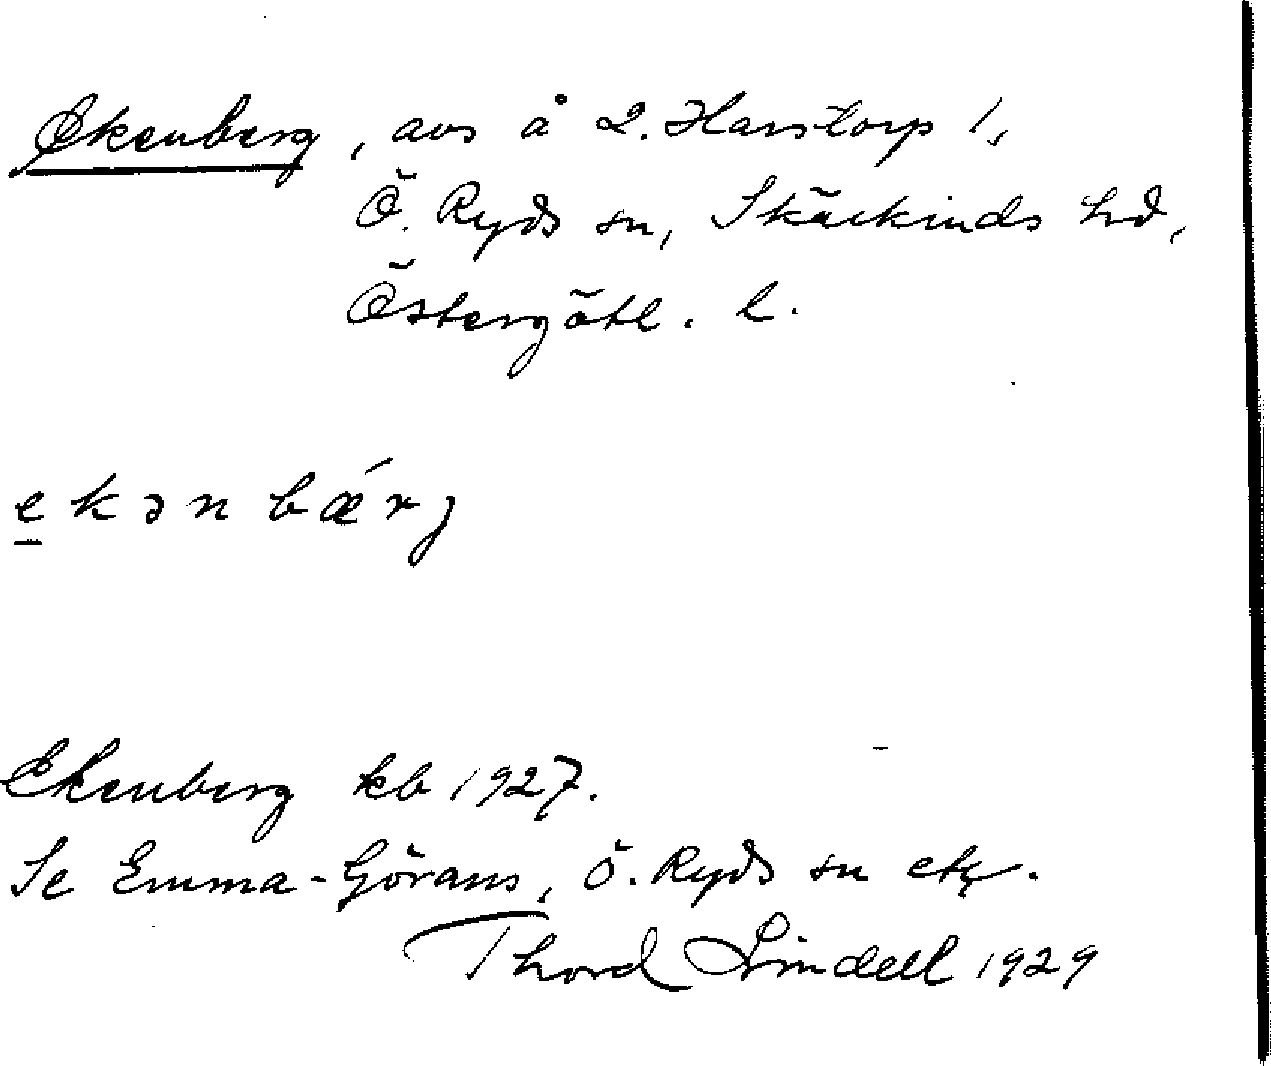 Ekenberg, avs å L. Harstorp 1,
Ö. Ryds sn, Skärkinds hd,
Östergötl. l.
ekənbǽrj
Ekenberg kb 1927.
Se Emma-Görans, Ö. Ryds sn etc.
Thord Lindell 1929